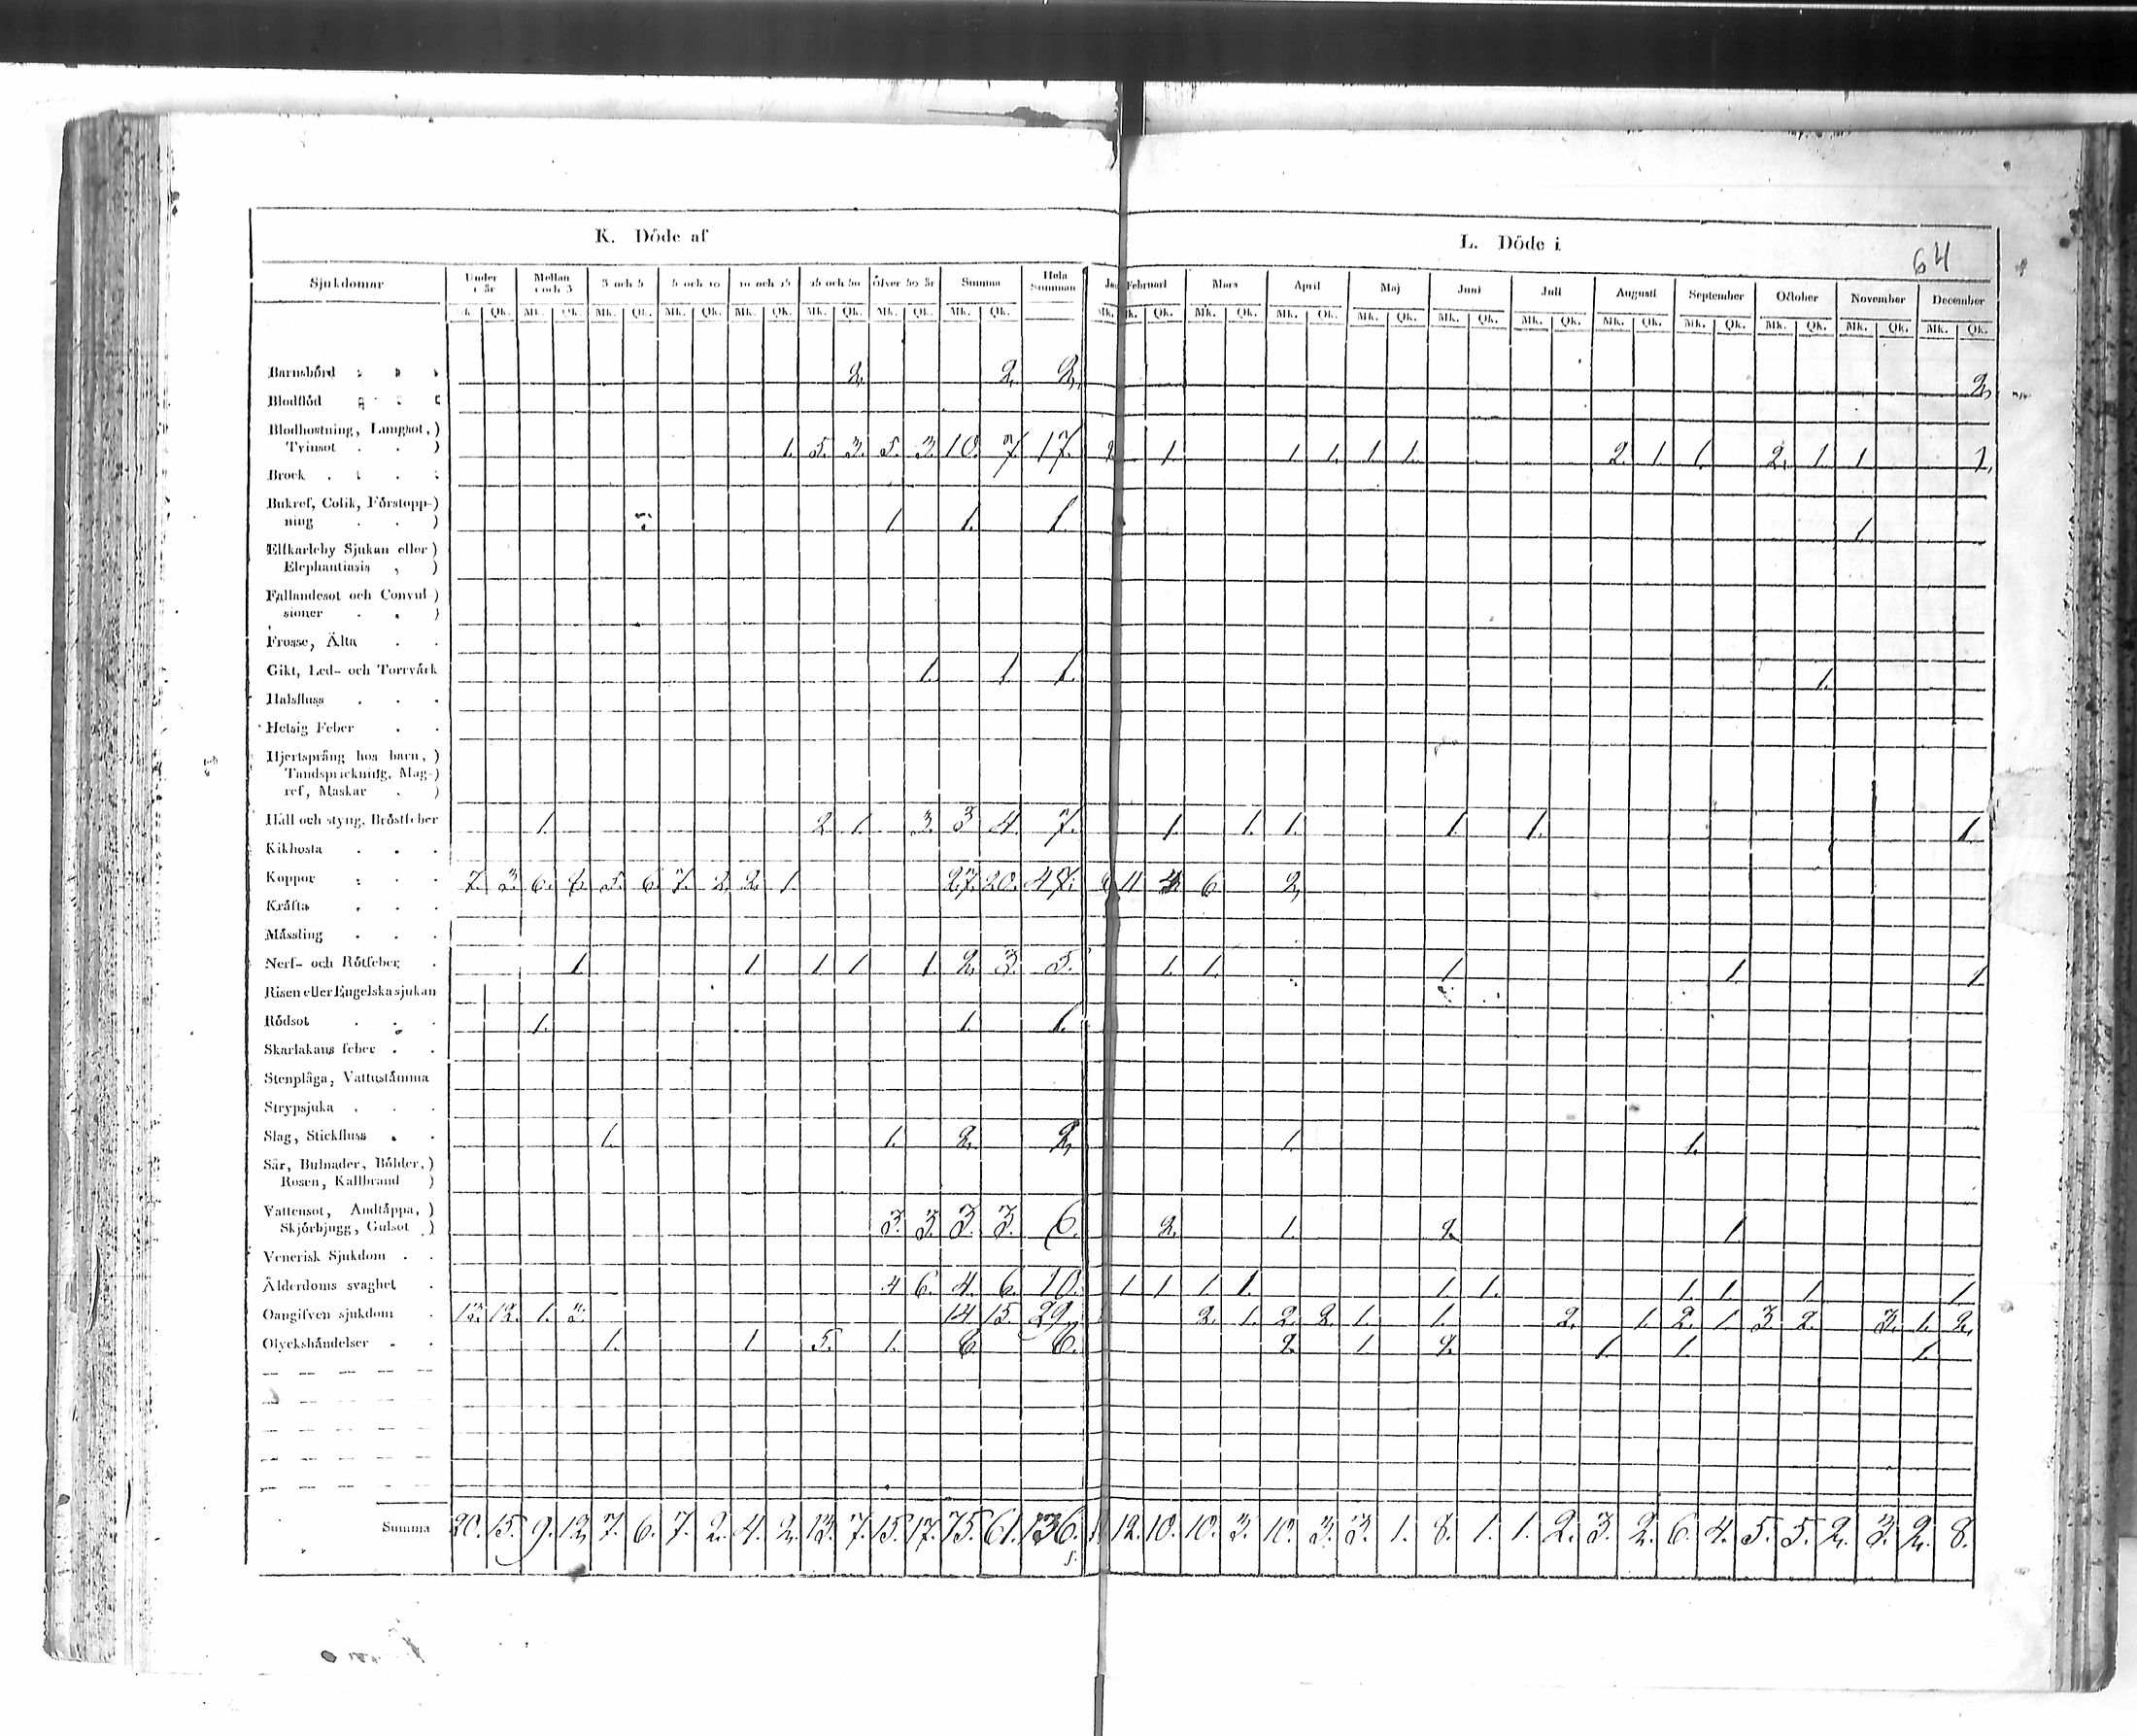 K. Döde af L. Döde i
64
Sjukdomar Under 1 år Mellan 1 och 3 3 och 5 5 och 10 10 och 25 25 och 50 öfver 50 år Summa Hela Summan Februari Mars April Maj Juni Juli Augusti September October November December
Qk. Mk. Qk. Mk. Qk. Mk. Qk. Mk. Qk. Mk. Qk. Mk. Qk. Mk. Qk. Mk. Qk. Mk. Qk. Mk. Qk. Mk. Qk. Mk. Qk. Mk. Qk. Mk. Qk. Mk. Qk. Mk. Qk. Mk. Qk. Mk. Qk.
Barnsbörd 2. 2. 2. 2.
Blodflöd
Blodhostning, Lungsot, )
Tvinsot . . ) 1. 5. 3. 5. 3. 10. 7. 17. 2 1. 1. 1. 1. 1. 2. 1. 1. 2. 1. 1. 1.
Brock
Bukref, Colik, Förstopp-)
ning . . ) 1. 1. 1. 1.
Elfkarleby Sjukan eller )
Elephantiasis , )
Fallandesot och Convul-)
sioner . . )
Frosse, Älta . .
Gikt, Led- och Torrvärk 1. 1. 1. 1.
Halsfluss . . .
Hetsig Feber . .
Hjertsprång hos barn, )
Tandsprickning, Mag-)
ref, Maskar . )
Håll och styng, Bröstfeber 1. 2. 1. 3. 3 4. 7. 1. 1. 1. 1. 1. 1.
Kikhosta . . .
Koppor . . . 7. 3. 6. 7. 5. 6. 7. 2. 2. 1. 27. 20. 47. 11 4 6 2.
Kräfta . . .
Mässling . . .
Nerf- och Rötfeber . 1 1 1 1 1. 2. 3. 5. 1. 1. 1 1. 1.
Risen eller Engelska sjukan
Rödsot . . . 1. 1. 1.
Skarlakans feber . .
Stenplåga, Vattustämma
Strypsjuka . . .
Slag, Stickfluss . . 1. 1. 2. 2. 1. 1.
Sår, Bulnader, Bölder, )
Rosen, Kallbrand )
Vattensot, Andtäppa, )
Skjörbjugg, Gulsot . ) 3. 3. 3. 3. 6. 2. 1. 2. 1.
Venerisk Sjukdom . .
Ålderdoms svaghet . 4 6. 4. 6. 10. 1 1 1 1. 1 1. 1. 1. 1 1
Oangifven sjukdom . 13. 12. 1. 3. 14 15. 29. 2. 1. 2. 2. 1. 1. 2. 1. 2. 1. 3. 2. 3. 1. 2.
Olyckshändelser . . 1. 1 5. 1. 8 8. 2. 1. 2. 1. 1. 1.
Summa 20. 15. 9. 12. 7. 6. 7. 2. 4. 2. 13. 7. 15. 17. 75. 61. 136. 12. 10. 10. 3. 10. 3. 3. 1. 8. 1. 1. 2. 3. 2. 6. 4. 5. 5. 2. 3. 2. 8.